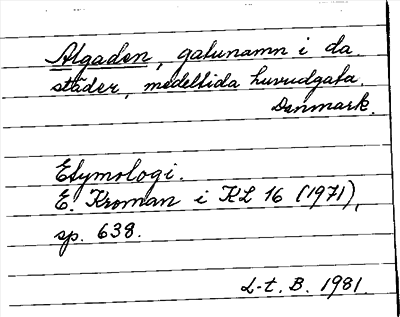 Algaden, gatunamn i da
städer, medeltida huvudgata.
Danmark.
Etymologi.
E. Kroman i KL 16 (1971),
sp. 638.
L-t. B. 1981.